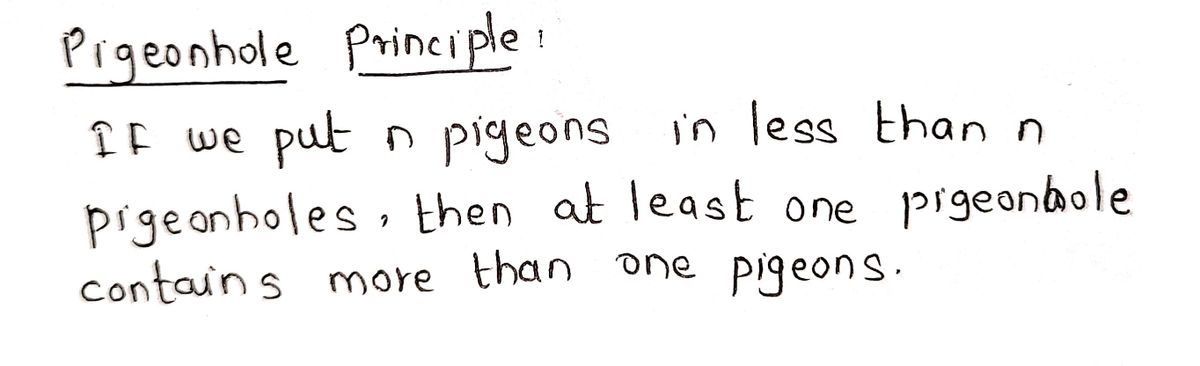 Pigeonhole Principle :
IF we put n pigeons in less than n
pigeonholes, then at least one pigeonhole
contains more than one pigeons.